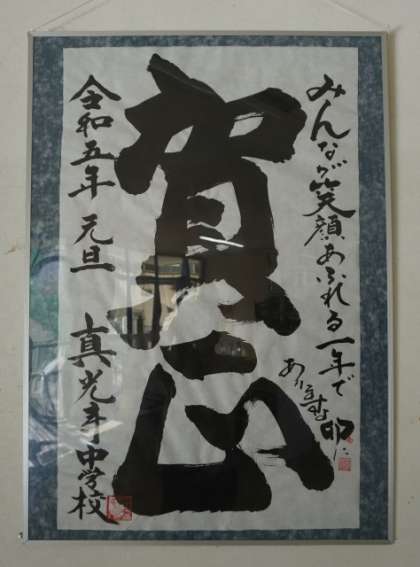 みんなが笑顔あふれる一年で
あります卯に
賀正
令和五年 元旦 真光寺中学校